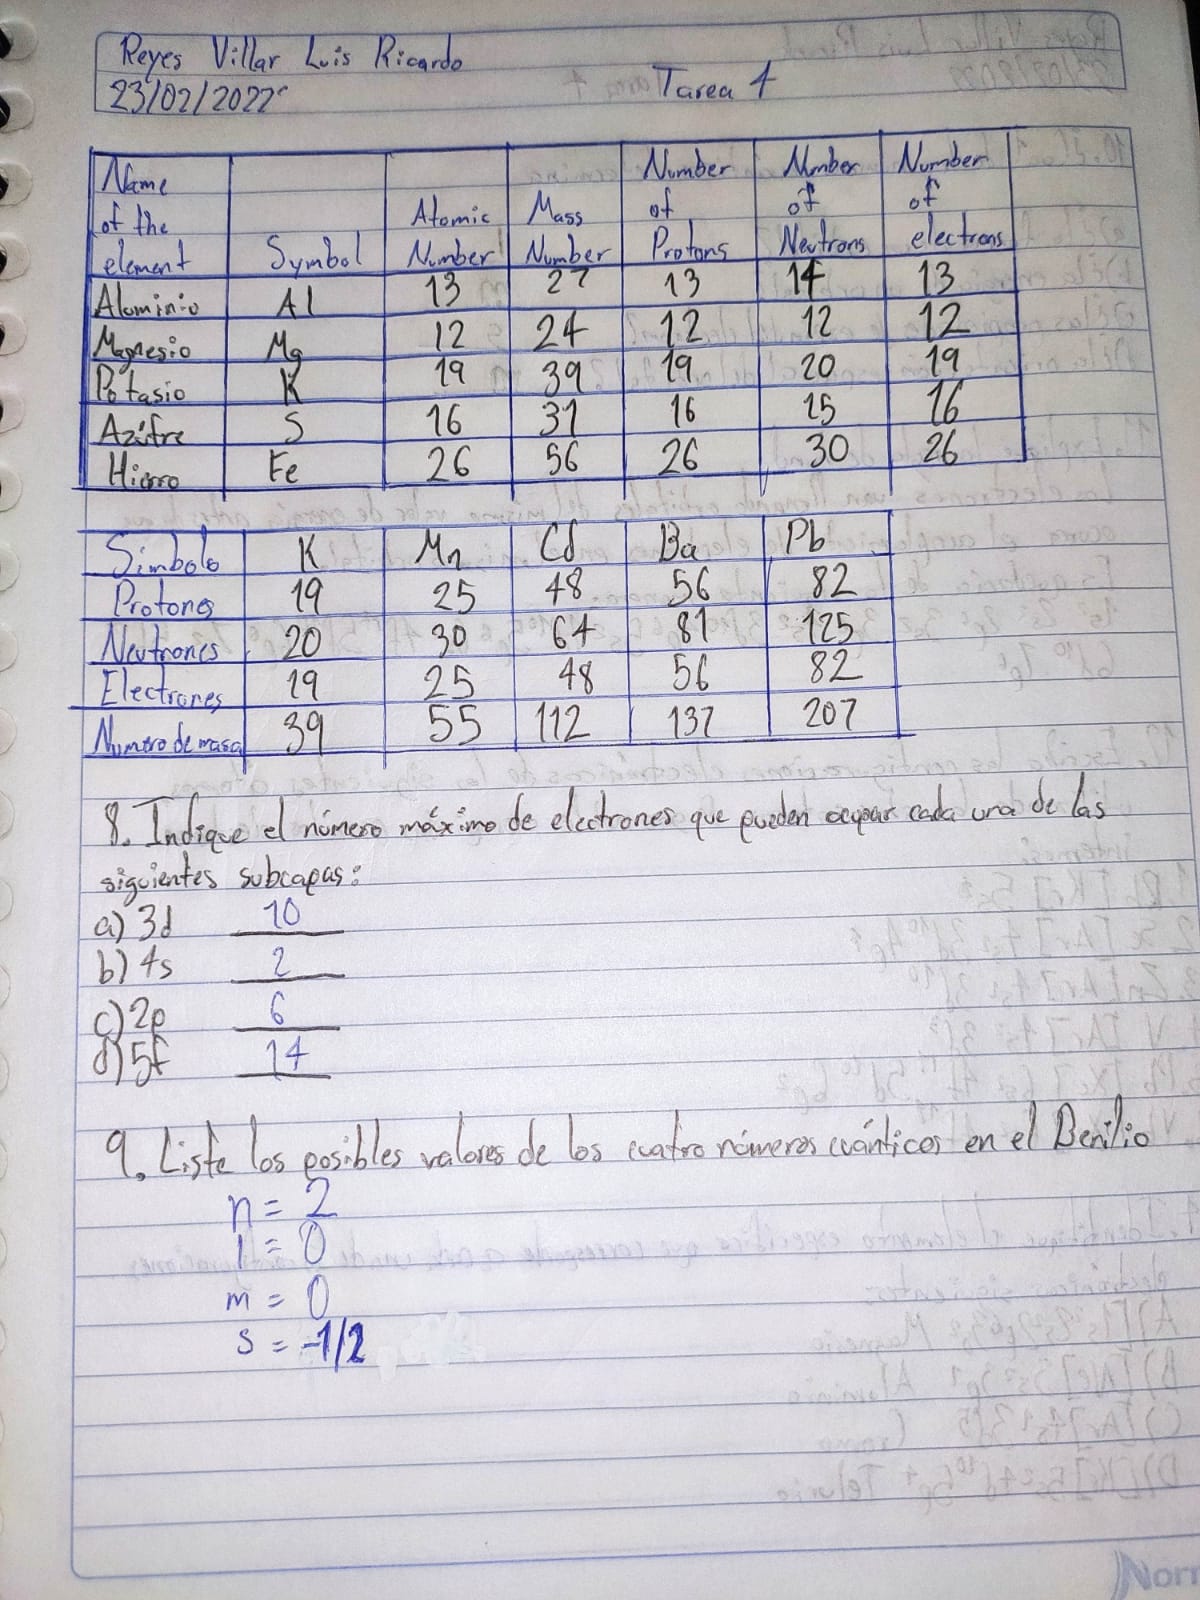 Reyes Villar Luis Ricardo
23/02/2022
Tarea 4
Name of the element Symbol Atomic Number Mass Number Number of Protons Number of Neutrons Number of electrons
Aluminio Al 13 27 13 14 13
Magnesio Mg 12 24 12 12 12
Potasio K 19 39 19 20 19
Azúfre S 16 31 16 15 16
Hierro Fe 26 56 26 30 26
Símbolo K Mn Cd Ba Pb
Protones 19 25 48 56 82
Neutrones 20 30 64 81 125
Electrones 19 25 48 56 82
Numero de masa 39 55 112 137 207
8. Indique el número máximo de electrones que pueden ocupar cada una de las
siguientes subcapas:
a) 3d 10
b) 4s 2
c) 2p 6
d) 5f 14
9. Liste los posibles valores de los cuatro números cuánticos en el Berilio
n = 2
l = 0
m = 0
s = -1/2
Norm